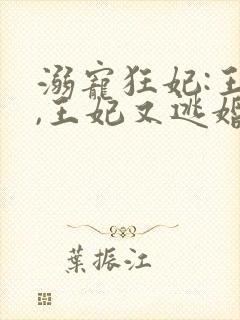 溺寵狂妃:王
,王妃又逃婚
葉振江